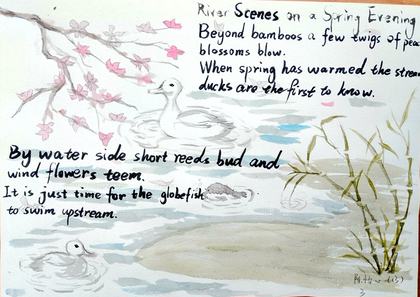 River Scenes on a Spring Evening
Beyond bamboos a few twigs of
blossoms blow.
When spring has warmed the
ducks are the first to know.
By water side short reeds bud and
wind flowers teem.
It is just time for the globefish
to swim upstream.